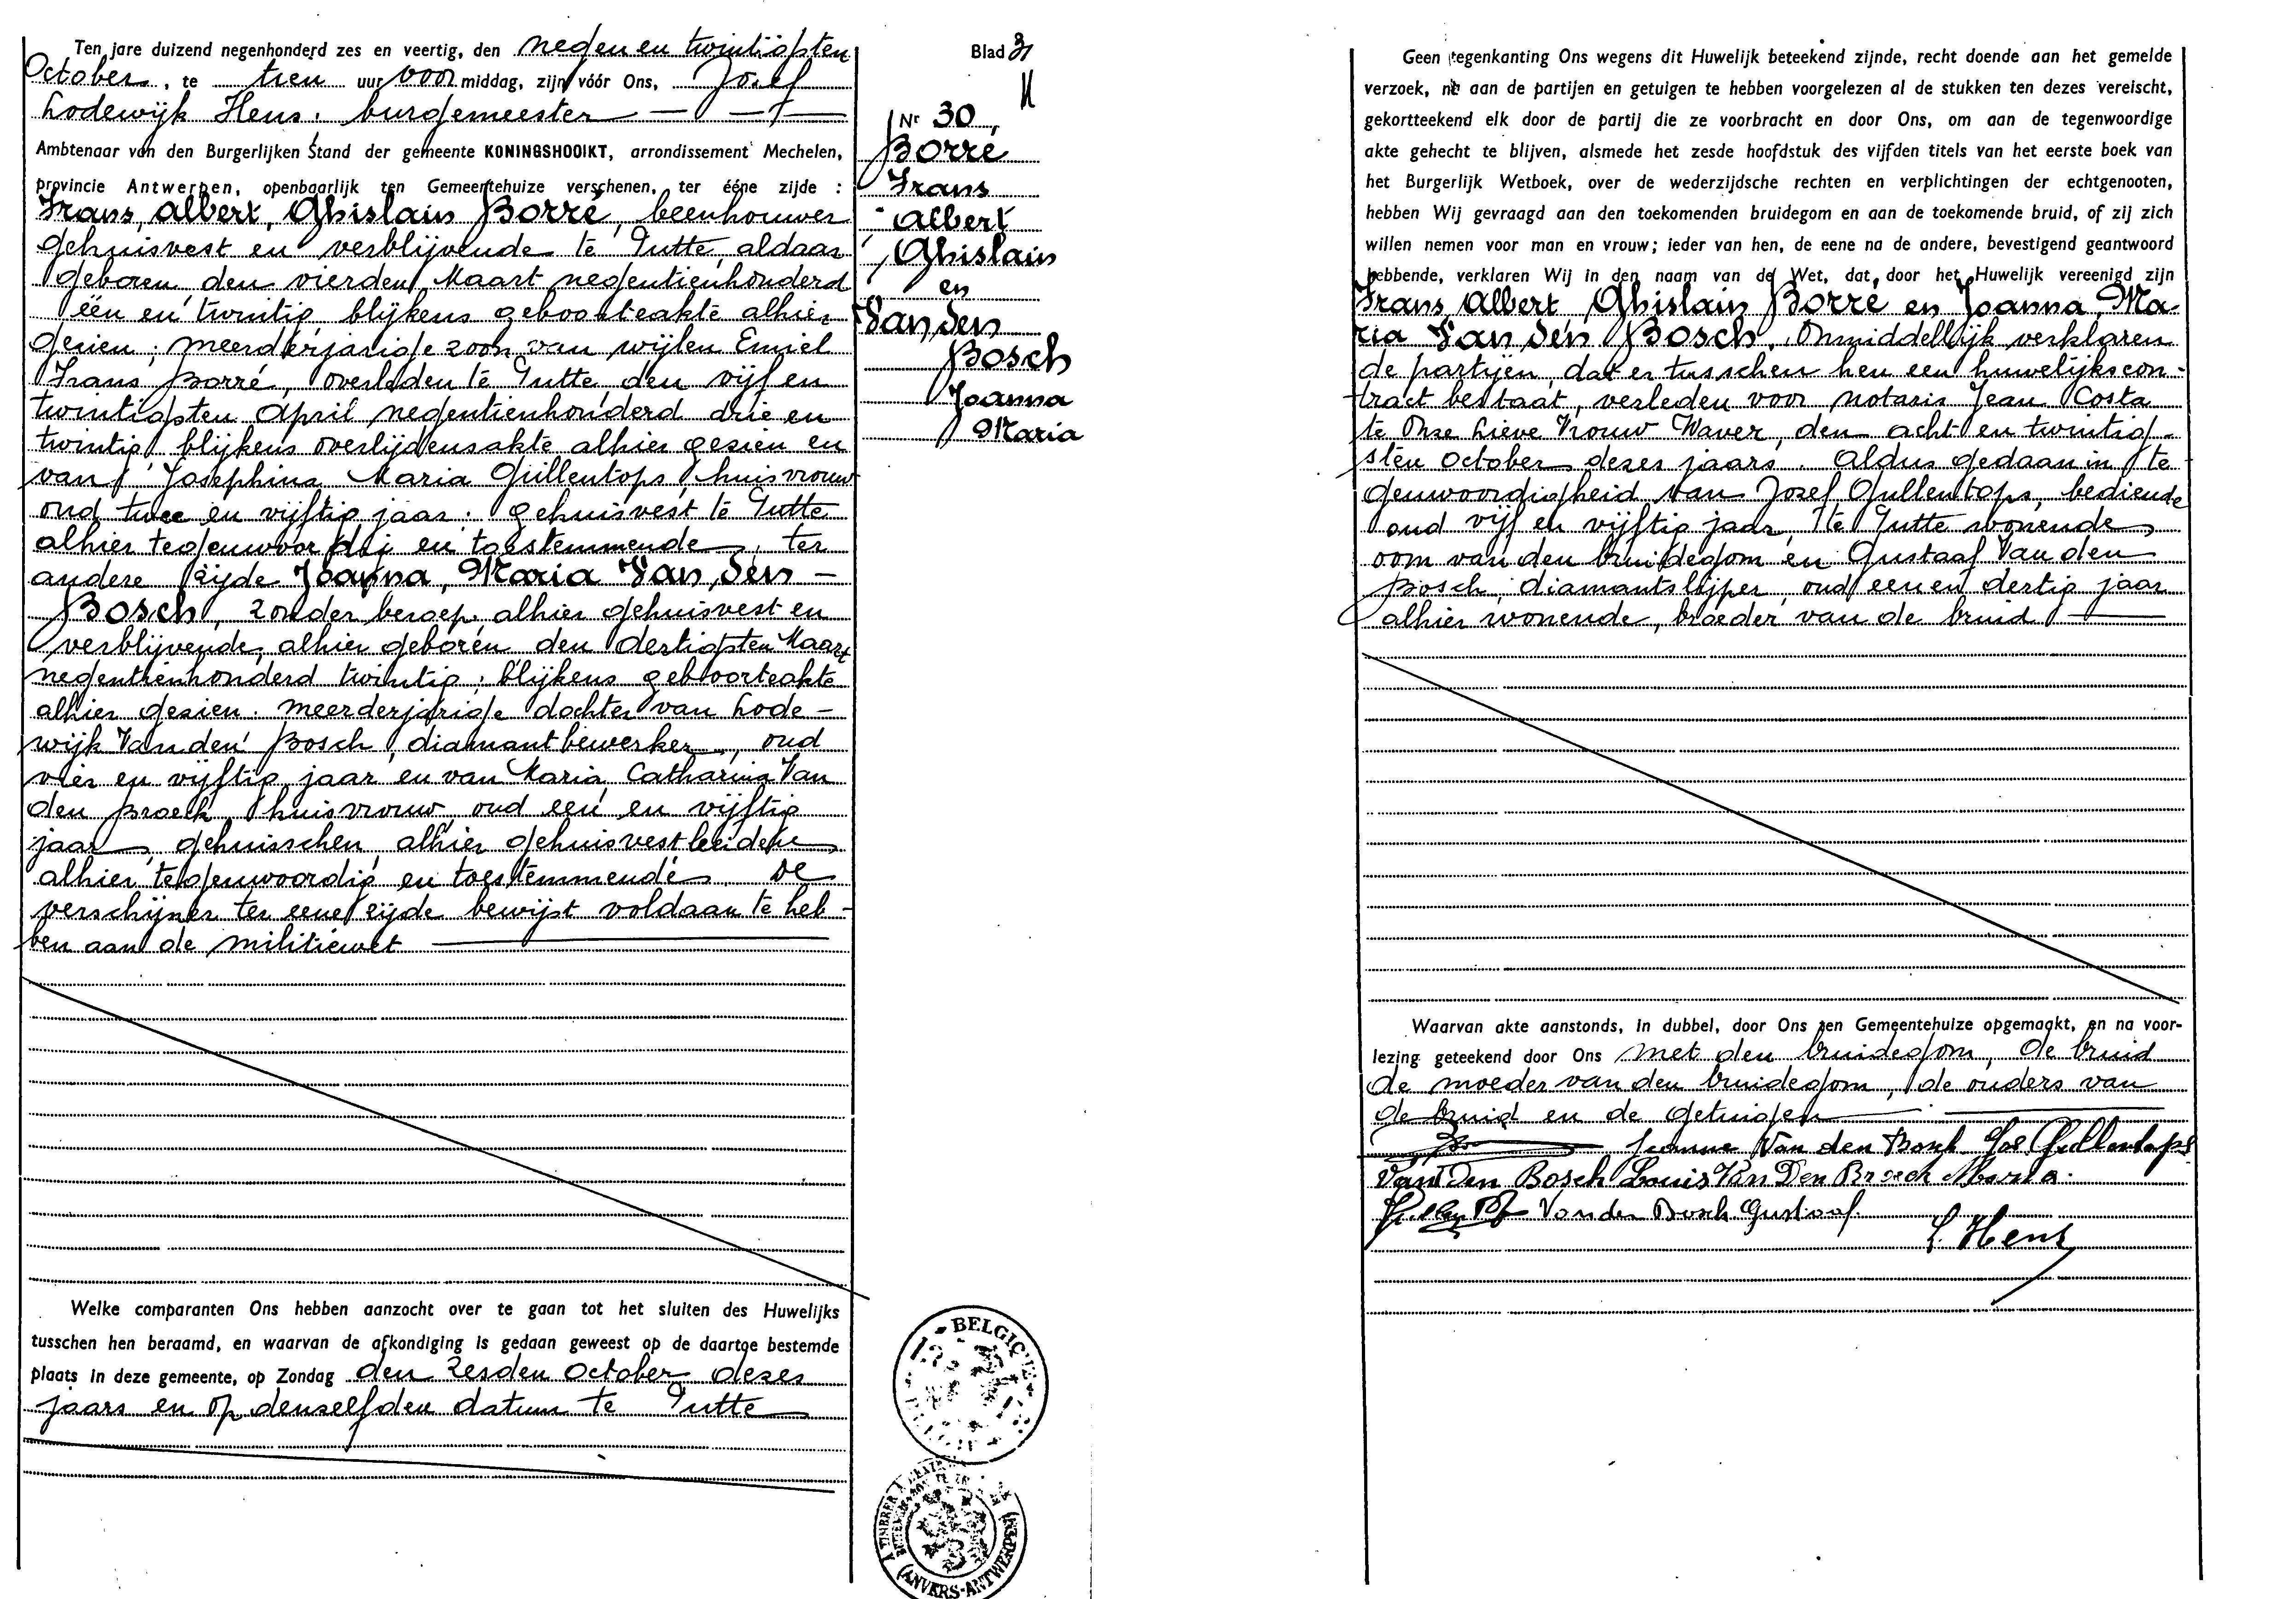 Ten jare duizend negenhonderd zes en veertig, den negen en twintigsten
October, te tien uur voormiddag, zijn vóór Ons, Jozef
Lodewijk Hens, burgemeester
Ambtenaar van den Burgerlijken Stand der gemeente KONINGSHOOIKT, arrondissement Mechelen,
provincie Antwerpen, openbaarlijk ten Gemeentehuize verschenen, ter ééne zijde :
Frans, Albert, Ghislain Borré, beenhouwer
gehuisvest en verblijvende te Putte, aldaar
geboren den vierden Maart negentienhonderd
één en twintig, blijkens geboorteakte alhier
gezien; meerderjarige zoon van wijlen Emiel
Frans Borré, overleden te Putte den vijf en
twintigsten April negentienhonderd drie en
twintig, blijkens overlijdensakte alhier gezien en
van Josephina Maria Gullentops, huisvrouw
oud twee en vijftig jaar, gehuisvest te Putte
alhier tegenwoordig en toestemmende, ter
andere zijde Joanna, Maria Van den
Bosch, zonder beroep, alhier gehuisvest en
verblijvende, alhier geboren den dertigsten Maart
negentienhonderd twintig, blijkens geboorteakte
alhier gezien. meerderjarige dochter van Lode-
wijk Van den Bosch, diamantbewerker, oud
vier en vijftig jaar en van Maria Catharina Van
den Broeck, huisvrouw, oud een en vijftig
jaar, gehuisschen, alhier gehuisvest beidene
alhier tegenwoordig en toestemmende. De
verschijner ter eene zijde bewijst voldaan te heb-
ben aan de militiewet
Welke comparanten Ons hebben aanzocht over te gaan tot het sluiten des Huwelijks
tusschen hen beraamd, en waarvan de afkondiging is gedaan geweest op de daartoe bestemde
plaats in deze gemeente, op Zondag den zesden October dezes
jaars en op denzelfden datum te Putte
Blad 31
Nr 30
Borré
Frans
Albert
Ghislain
en
Van den
Bosch
Joanna
Maria
BELGIQUE
ANVERS-ANTWERPEN
Geen tegenkanting Ons wegens dit Huwelijk beteekend zijnde, recht doende aan het gemelde
verzoek, na aan de partijen en getuigen te hebben voorgelezen al de stukken ten dezes vereischt,
gekortteekend elk door de partij die ze voorbracht en door Ons, om aan de tegenwoordige
akte gehecht te blijven, alsmede het zesde hoofdstuk des vijfden titels van het eerste boek van
het Burgerlijk Wetboek, over de wederzijdsche rechten en verplichtingen der echtgenooten,
hebben Wij gevraagd aan den toekomenden bruidegom en aan de toekomende bruid, of zij zich
willen nemen voor man en vrouw; ieder van hen, de eene na de andere, bevestigend geantwoord
hebbende, verklaren Wij in den naam van de Wet, dat door het Huwelijk vereenigd zijn
Frans, Albert, Ghislain Borré en Joanna, Ma-
ria Van den Bosch. Onmiddellijk verklaren
de partijen, dat er tusschen hen een huwelijkscon-
tract bestaat, verleden voor notaris Jean Costa
te Onze Lieve Vrouw Waver, den acht en twintig-
sten October dezes jaars. Aldus gedaan in te-
genwoordigheid van Jozef Gullentops, bediende
oud vijf en vijftig jaar, te Putte wonende,
oom van den bruidegom en Gustaaf Van den
Bosch, diamantslijper, oud een en dertig jaar
alhier wonende, broeder van de bruid
Waarvan akte aanstonds, in dubbel, door Ons ten Gemeentehuize opgemaakt, en na voor-
lezing geteekend door Ons met den bruidegom, de bruid
de moeder van den bruidegom, de ouders van
de bruid en de getuigen
Jeanne Van den Bosch Jos. Gullentops
Van Den Bosch Louis Van Den Broeck Maria.
Van den Bosch Gustaaf
L. Hens